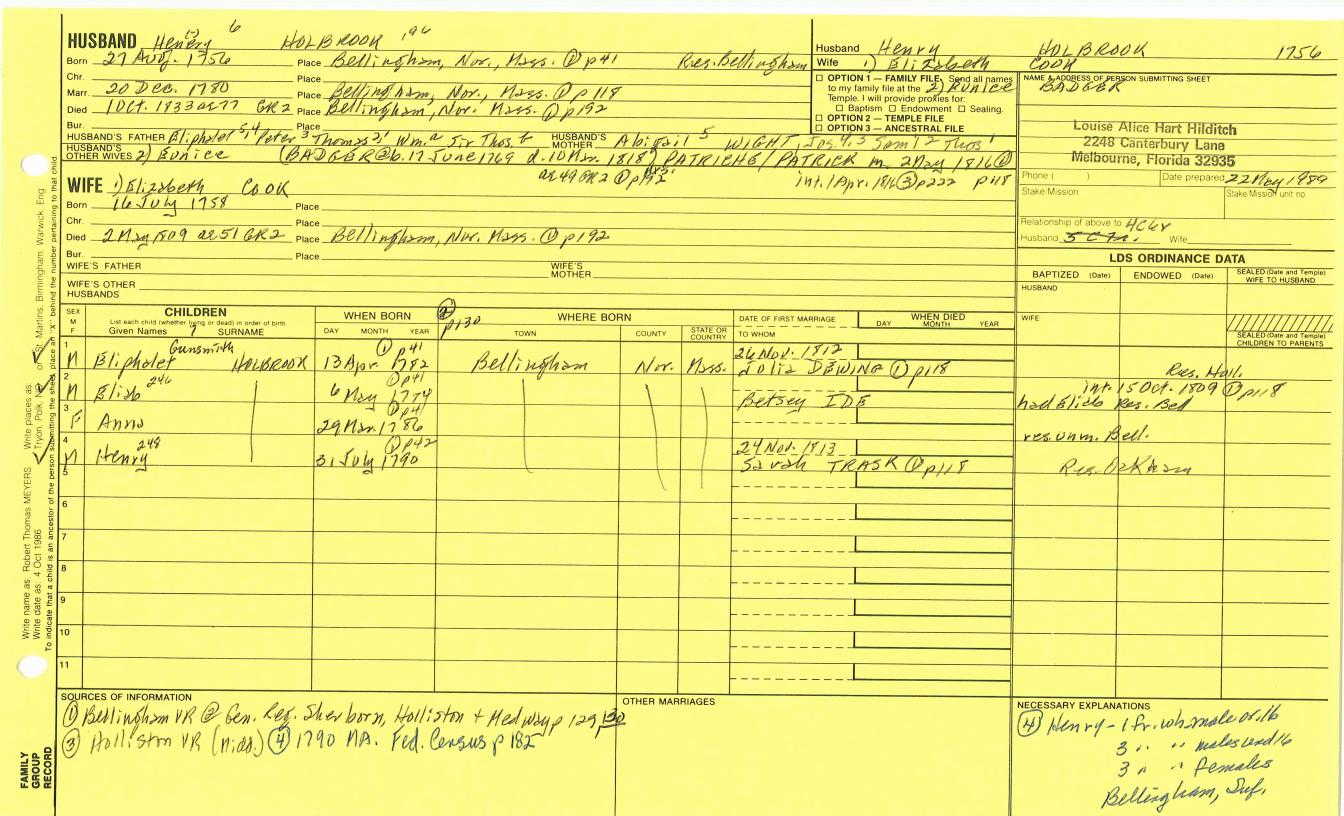 HUSBAND Henry (5) 6 HOLBROOK 196
Born 27 Aug. 1756 Place Bellingham, Nor., Mass. ① p41 Res. Bellingham
Chr. Place
Marr. 20 Dec. 1780 Place Bellingham, Nor., Mass. ① p118
Died 1 Oct. 1833 ae 77 GR2 Place Bellingham, Nor. Mass. ① p192
Bur. Place
HUSBAND'S FATHER Eliphalet 5,4 Peter 3 Thomas 2 1 Wm. a Sir Thos. b HUSBAND'S MOTHER Abigail 5 WIGHT, Jos. 4,3 Saml 2 Thos 1
HUSBAND'S OTHER WIVES 2) Eunice (BADGER ② b. 17 June 1769 d. 10 Mar. 1818?) PATRICHE/PATRICK m. 2 May 1816 ①
ae 49 GR2 ① p192 int. 1 Apr. 1816 ③ p222 p118
Husband Henry HOLBROOK 1756
Wife 1) Elizabeth COOK
2) Eunice BADGER
☐ OPTION 1 — FAMILY FILE Send all names
to my family file at the
Temple. I will provide proxies for:
☐ Baptism ☐ Endowment ☐ Sealing.
☐ OPTION 2 — TEMPLE FILE
☐ OPTION 3 — ANCESTRAL FILE
NAME & ADDRESS OF PERSON SUBMITTING SHEET
Louise Alice Hart Hilditch
2248 Canterbury Lane
Melbourne, Florida 32935
Phone ( ) Date prepared 22 May 1989
Stake Mission Stake Mission unit no.
Relationship of above to 4C6r
Husband Wife
WIFE 1) Elizabeth COOK
Born 16 July 1758 Place
Chr. Place
Died 2 May 1809 ae 51 GR2 Place Bellingham, Nor. Mass. ① p192
Bur. Place
WIFE'S FATHER WIFE'S MOTHER
WIFE'S OTHER HUSBANDS
LDS ORDINANCE DATA
BAPTIZED (Date) ENDOWED (Date) SEALED (Date and Temple) WIFE TO HUSBAND
HUSBAND
WIFE
SEALED (Date and Temple) CHILDREN TO PARENTS
SEX M F
CHILDREN
List each child (whether living or dead) in order of birth.
Given Names 7 SURNAME
WHEN BORN
DAY MONTH YEAR
② p130
WHERE BORN
TOWN COUNTY STATE OR COUNTRY
DATE OF FIRST MARRIAGE
TO WHOM
WHEN DIED
DAY MONTH YEAR
1 M Eliphalet Gunsmith HOLBROOK 13 Apr. 1782 ① p41 Bellingham Nor. Mass. 26 Nov. 1812 Julia DEWING ① p118 Res. Holl.
2 M Eliab 246 6 May 1774 ① p41 Betsey IDE int. 15 Oct. 1809 ① p118
had Eliab Res. Bel
3 F Anna 29 Mar. 1786 ① p41 res. unm. Bell.
4 M Henry 248 31 July 1790 ① p42 24 Nov. 1813 Sarah TRASK ① p118 Res. Oakham
5
6
7
8
9
10
11
SOURCES OF INFORMATION
① Bellingham VR ② Gen. Reg. Sherborn, Holliston + Medway p 129, 130
③ Holliston VR (nids.) ④ 1790 MA. Fed. Census p 182
OTHER MARRIAGES
NECESSARY EXPLANATIONS
④ Henry - 1 fr. wh. male ov. 16
3 " " males und 16
3 " " females
Bellingham, Suf.
Write name as: Robert Thomas MEYERS Write places as Tryon, Polk, N.C. or St. Martins, Birmingham, Warwick, Eng
Write date as: 4 Oct 1986
To indicate that a child is an ancestor of the person submitting the sheet, place an "X" behind the number pertaining to that child.
FAMILY
GROUP
RECORD